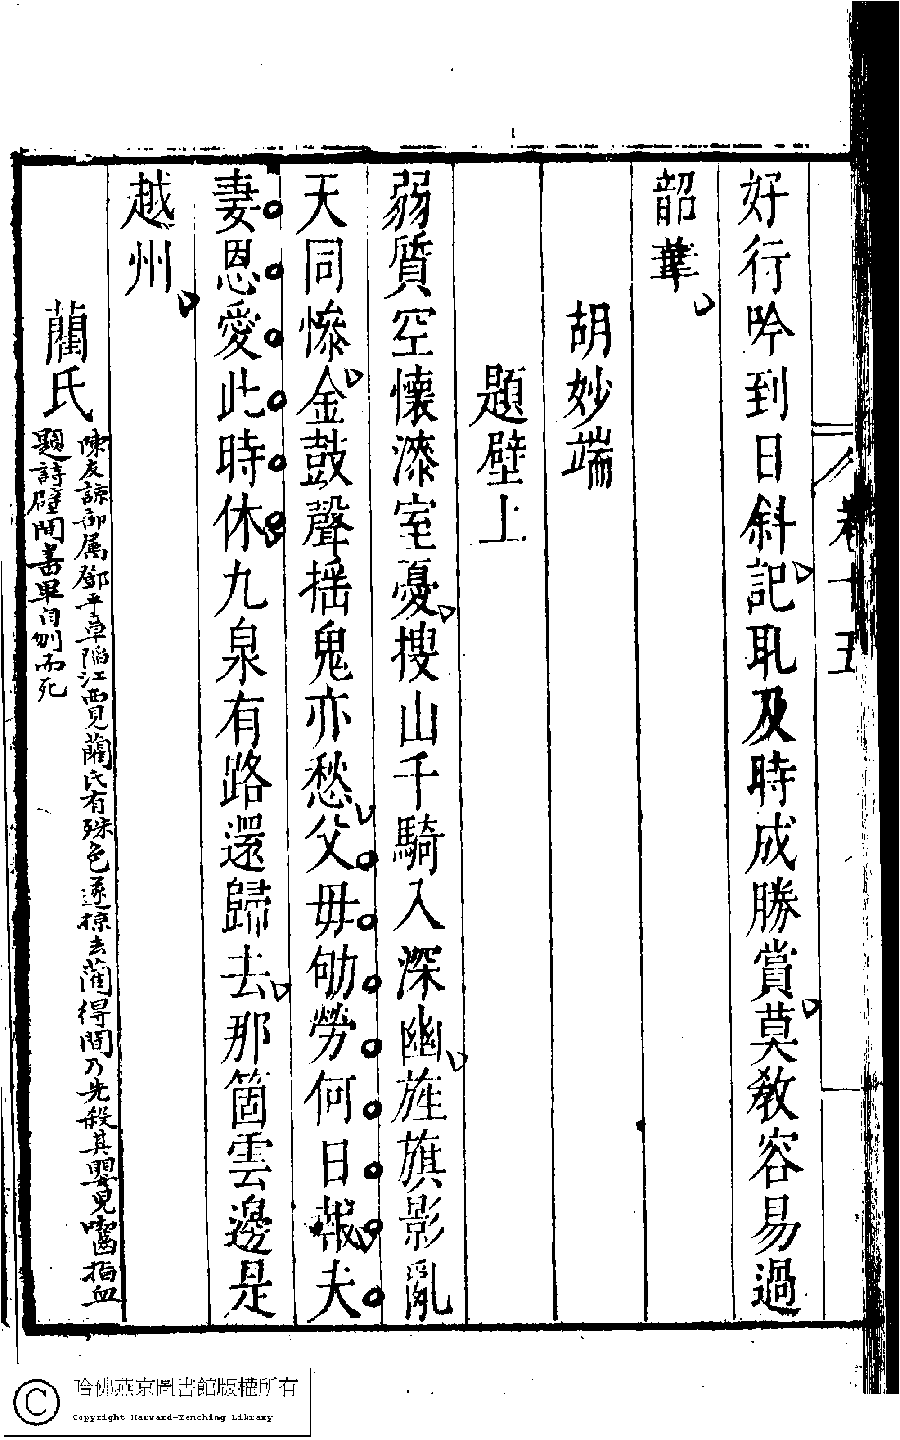 卷十五
好行吟到日斜記取及時成勝賞莫教容易過
韶華
胡妙端
題壁上
弱質空懷漆室憂搜山千騎入深幽旌旗影亂
天同慘金鼓聲搖鬼亦愁父母劬勞何日報夫
妻恩愛此時休九泉有路還歸去那箇雲邊是
越州
藺氏
陳友諒部属鄧平章陷江西見藺氏有殊色遂掠去藺得間乃先殺其嬰兒嚙指血
題詩壁間書畢自刎而死
哈佛燕京圖書館版權所有
Copyright Harvard-Yenching Library